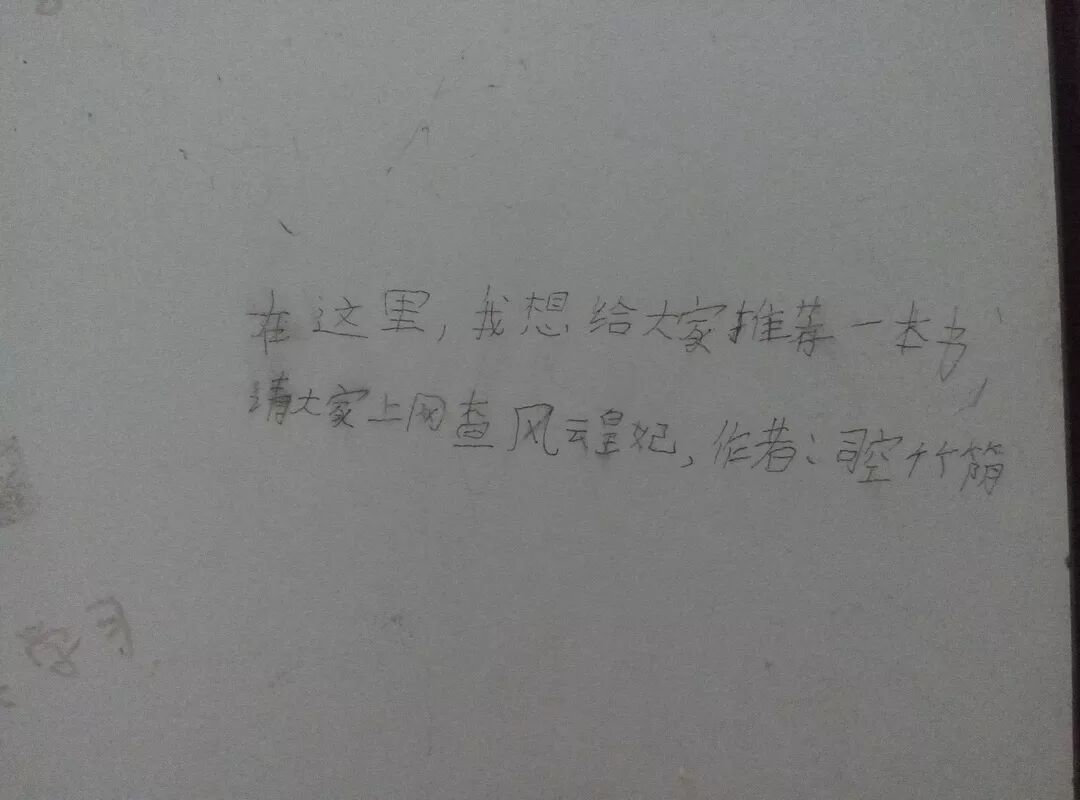 在这里,我想给大家推荐一本书,
请大家上网查风云皇妃,作者:司空竹筒